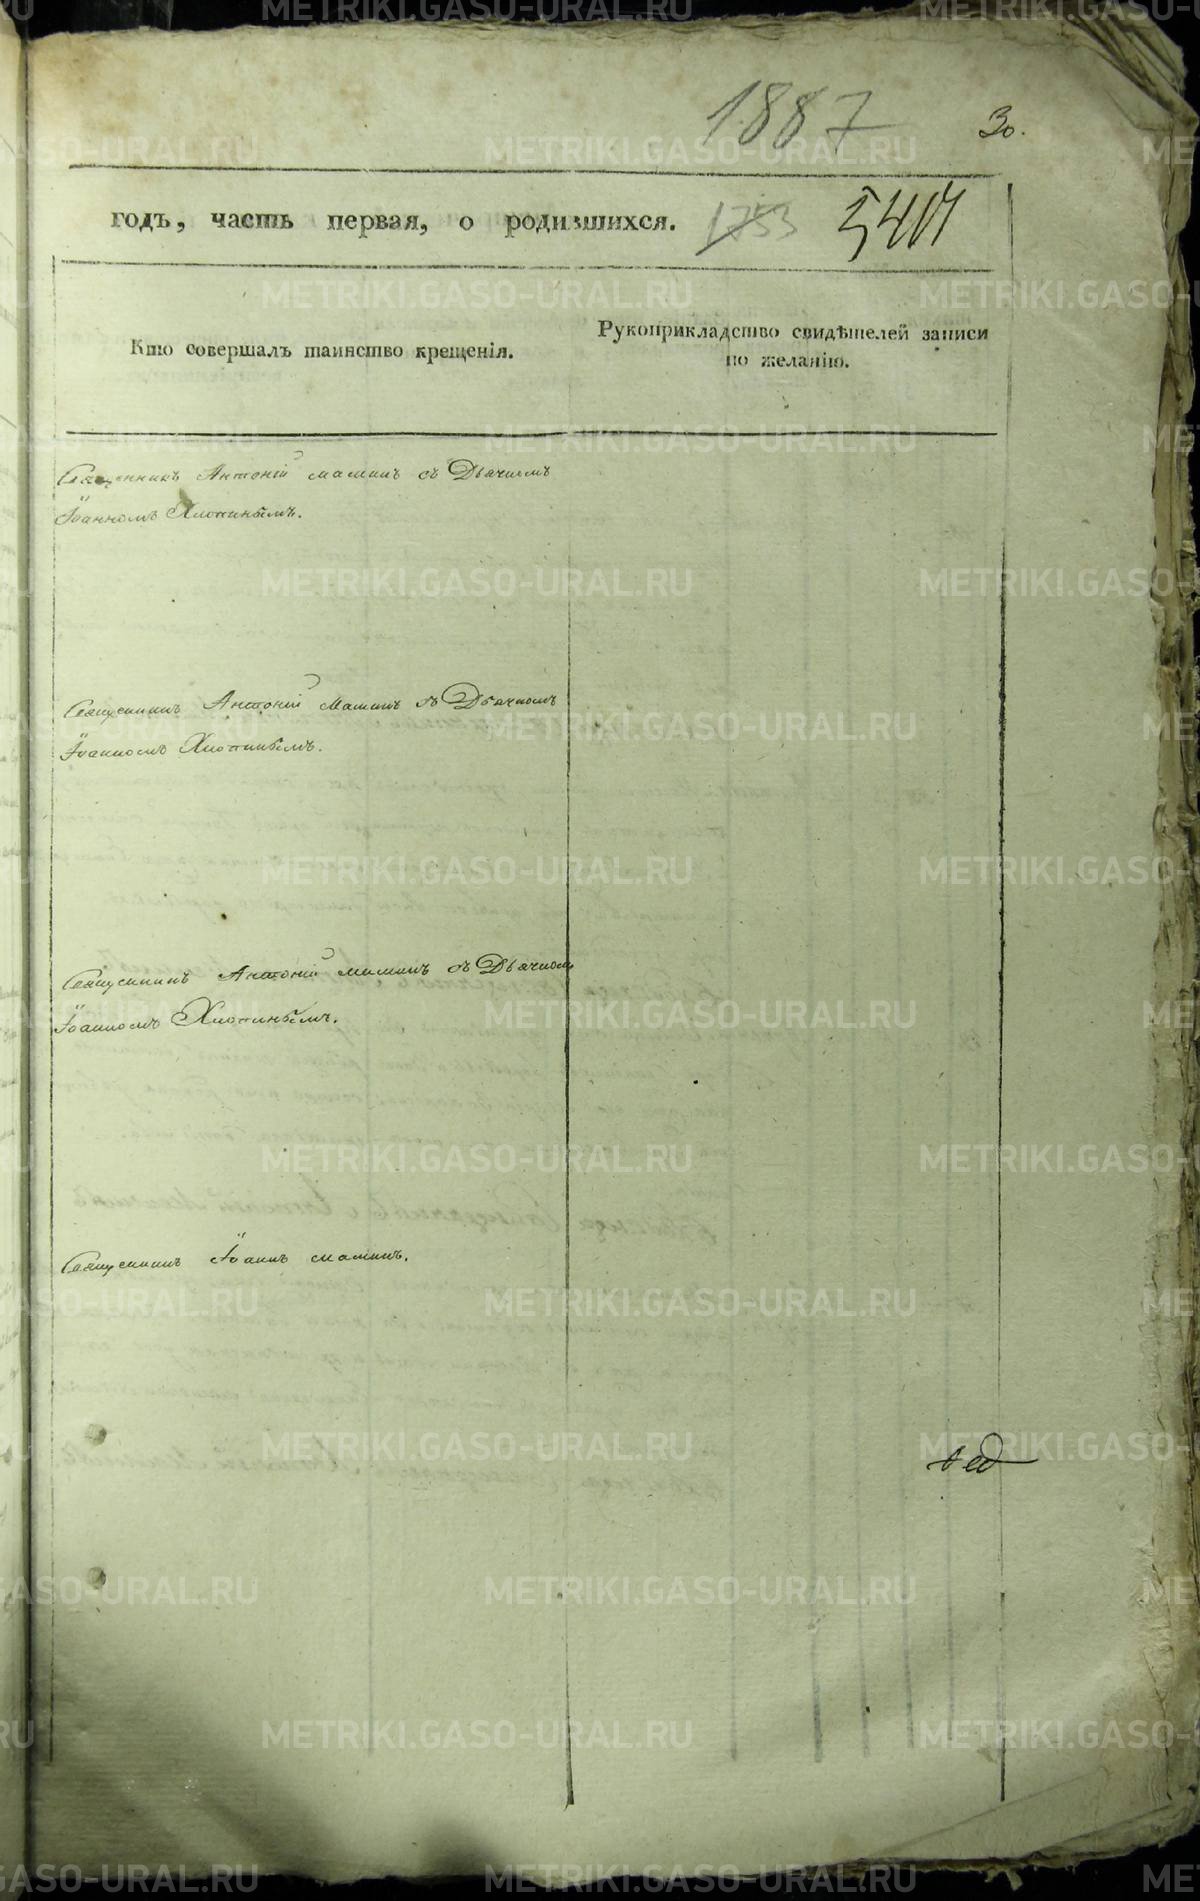 1887
30.
годъ, часть первая, о родившихся. 1753
Кто совершалъ таинство крещенія.
Рукоприкладство свидѣтелей записи
по желанію.
Священникъ Антоній Маминъ съ Дьячкомъ
Іоанномъ Хлопинымъ.
Священникъ Антоній Маминъ съ Дьячкомъ
Іоанномъ Хлопинымъ.
Священникъ Антоній Маминъ съ Дьячкомъ
Іоанномъ Хлопинымъ.
Священникъ Іоаннъ Маминъ.
METRIKI.GASO-URAL.RU